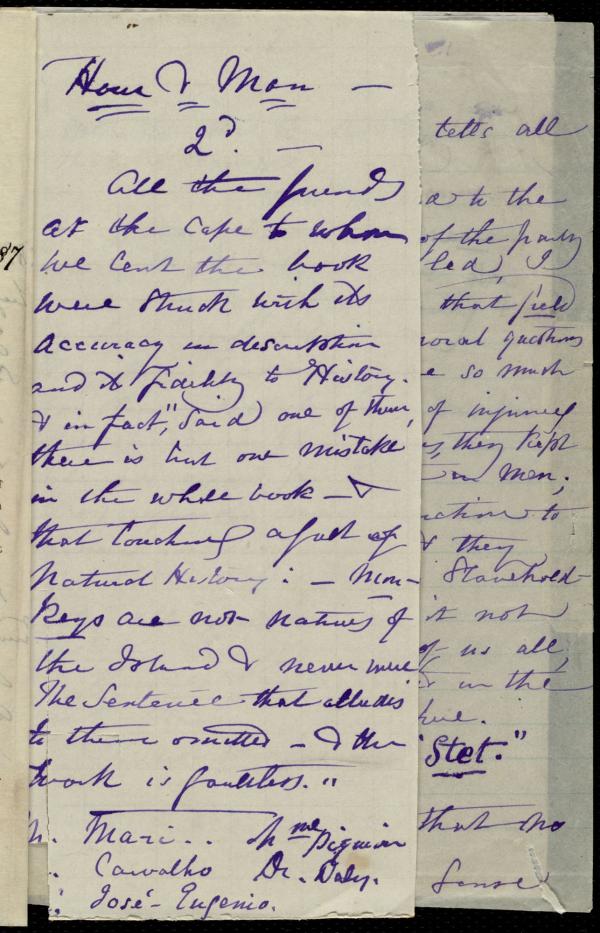 Hour & Man —
2d. —
All the friends
at the Cape to whom
we lent the book
were struck with its
accuracy in description
and its fidelity to History.
& in fact", said one of them,
there is but one mistake
in the whole book — &
that touching a fact of
Natural History: — Mon-
keys are not natives of
the Island & never were
The Sentence that alludes
to them omitted — & the
work is faultless."
Mari.. Mme Pignion
Carvalho Dr. Daly.
José - Eugenio.
87
tells all
to the
of the party
led, I
that field
moral questions
so much
of injured
they kept
men;
to
& they
Slavehold-
it not
of us all,
in the
"Stet."
that no
Sense